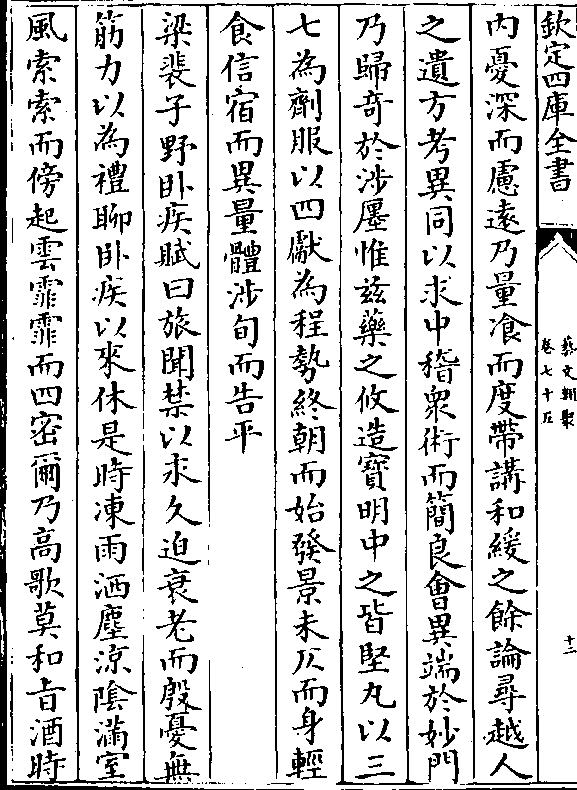 欽定四庫全書
藝文類聚
卷七十五
十二
内憂深而慮逺乃量飡而度帶講和緩之餘論尋越人
之遺方考異同以求中稽衆術而簡良會異端於妙門
乃歸竒於涉屢惟兹藥之攸造寳明中之皆堅丸以三
七為劑服以四獻為程勢終朝而始發景未仄而身輕
食信宿而異量體涉旬而告平
梁裴子野卧疾賦曰旅聞禁以永久迫衰老而殷憂無
筋力以為禮聊卧疾以來休是時凍雨洒塵涼陰滿室
風索索而傍起雲霏霏而四密爾乃高歌莫和㫖酒時